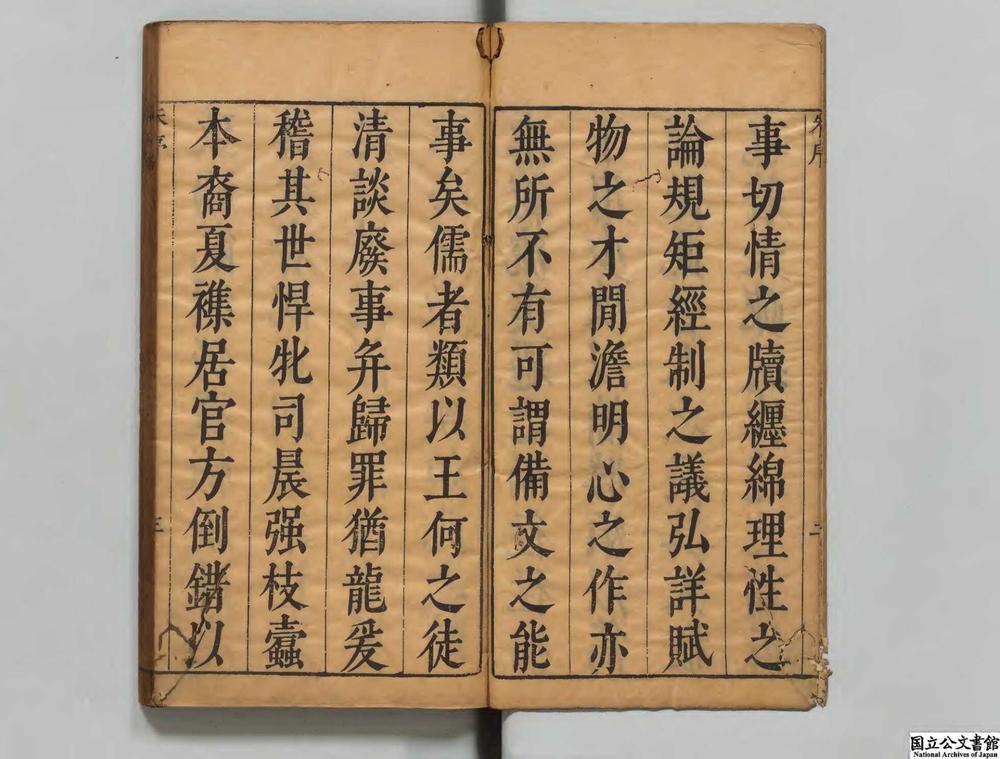 事切情之牘纒綿理性之
論規矩經制之議弘詳賦
物之才閒澹明心之作亦
無所不有可謂備文之能
事矣儒者類以王何之徒
清談廢事弁歸罪猶龍爰
稽其世悍牝司晨强枝蠹
本裔夏襍居官方倒錯以
国立公文書館
National Archives of Japan